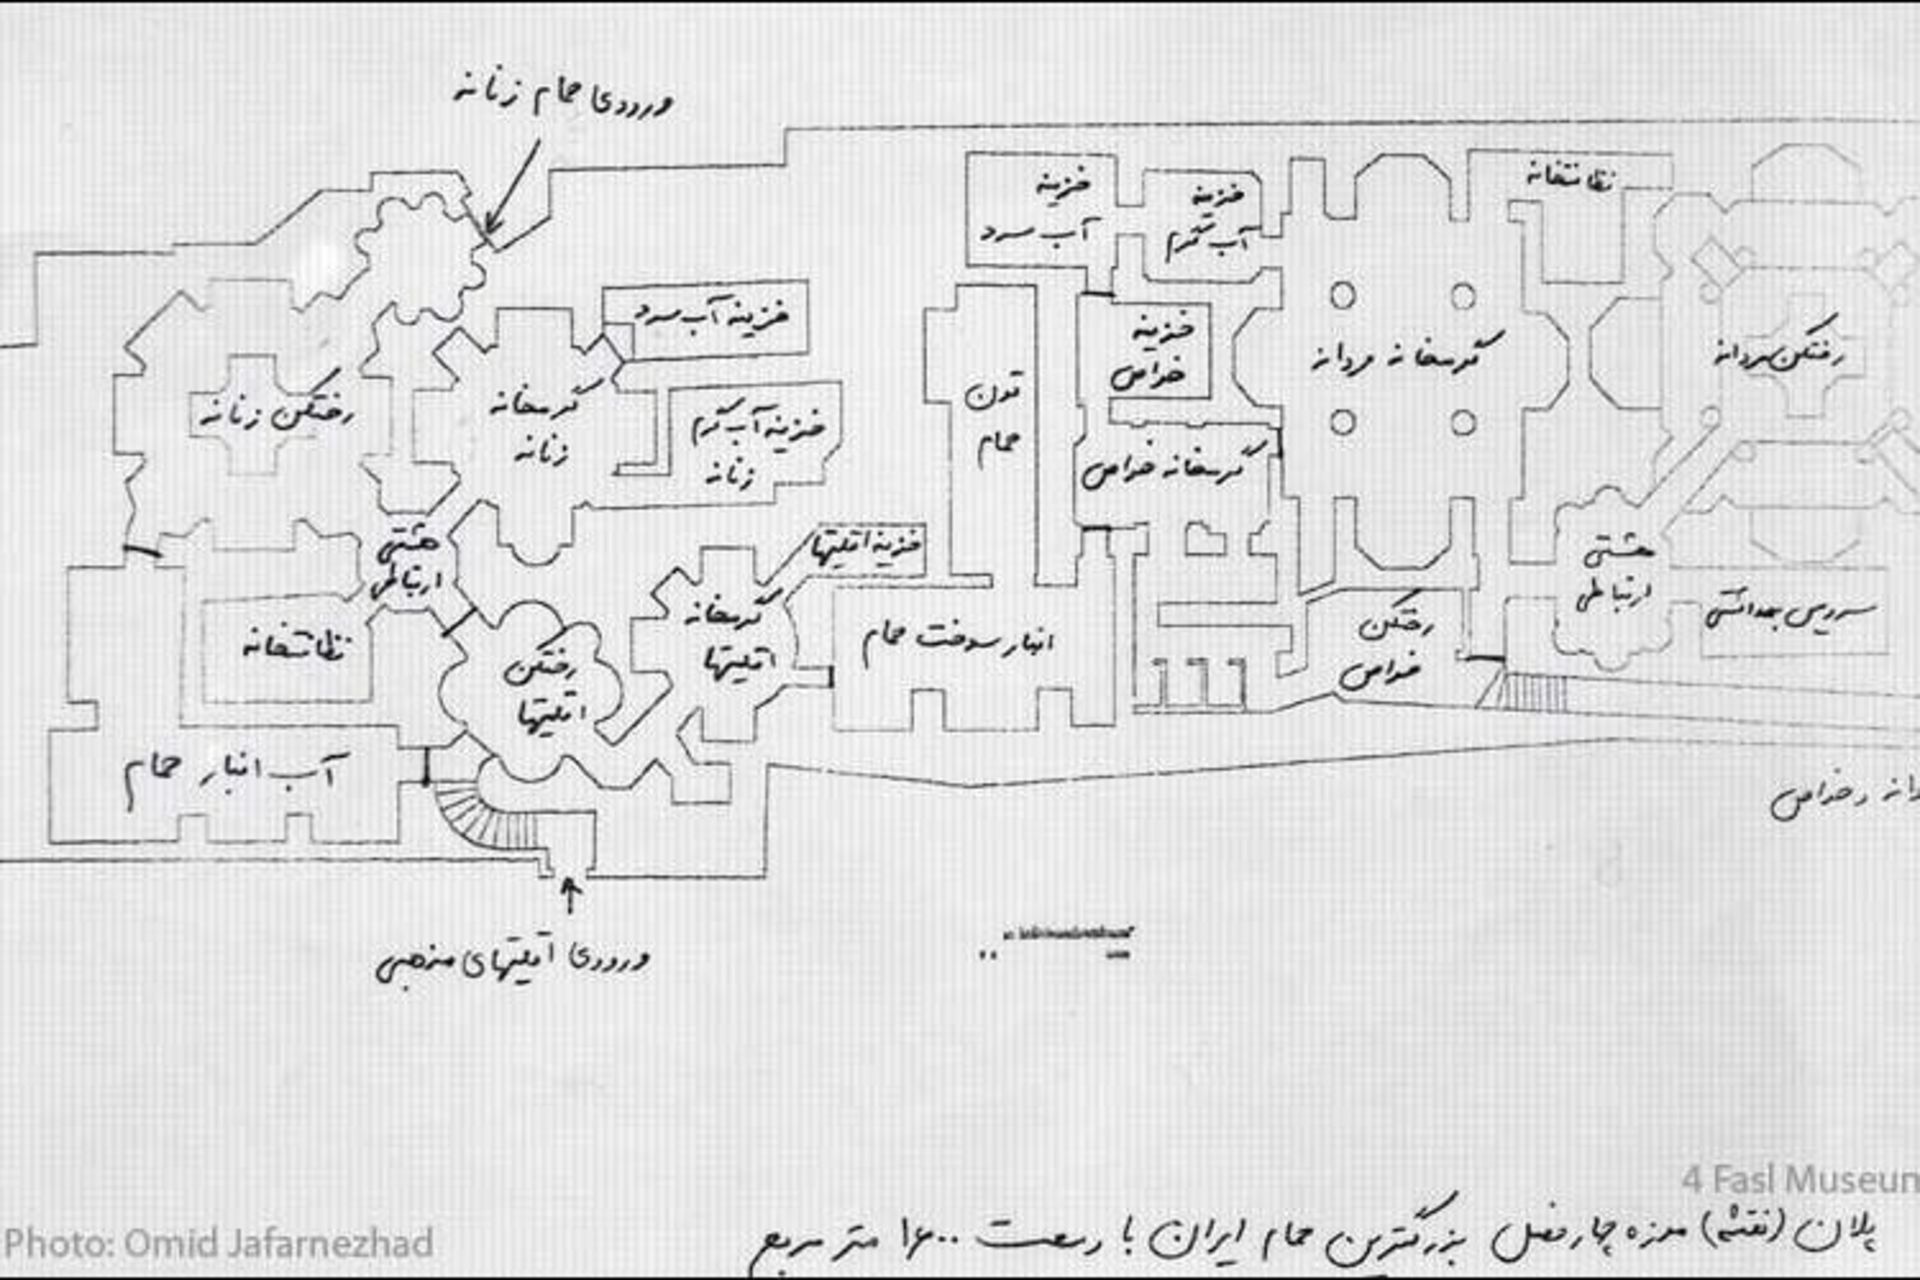 ورودی حمام زنانه
خزینه
آب سرد
خزینه
آب گرم
نظافتخانه
خزینه آب سرد
خزینه
خواص
گرمخانه مردانه
رختکن مردانه
رختکن زنانه
گرمخانه
زنانه
خزینه آب گرم
زنانه
تون
حمام
گرمخانه خواص
هشتی
ارتباطی
خزینه اقلیتها
هشتی
ارتباطی
نظافتخانه
رختکن
اقلیتها
گرمخانه
اقلیتها
انبار سوخت حمام
رختکن
خواص
سرویس بهداشتی
آب انبار حمام
و خواص
ورودی اقلیتهای مذهبی
4 Fasl Museum
Photo: Omid Jafarnezhad
پلان (نقشه) موزه چهارفصل بزرگترین حمام ایران با وسعت ۱۶۰۰ متر مربع